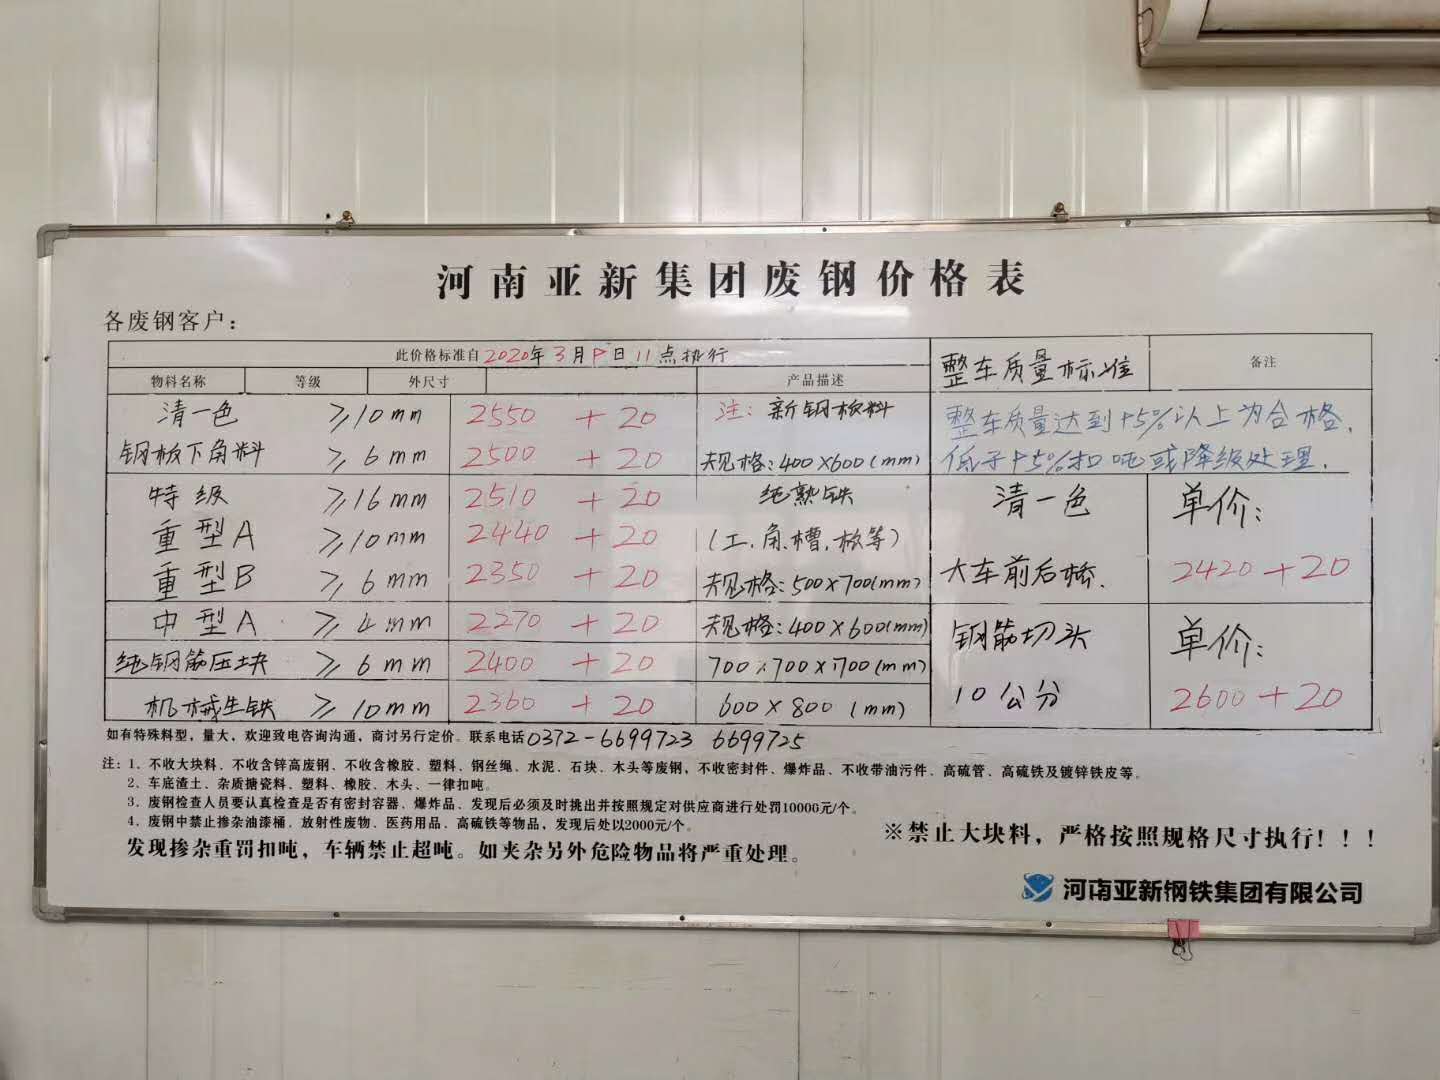 河南亚新集团废钢价格表
各废钢客户：
此价格标准自2020年3月 日11点执行
整车质量标准 备注
物料名称 等级 外尺寸 产品描述
清一色 ≥10mm 2550 +20 注：新钢板料
钢板下角料 ≥6mm 2500 +20 规格：400×600(mm)
整车质量达到 以上为合格，
低于 扣吨或降级处理．
特级 ≥16mm 2510 +20 纯熟铁
重型A ≥10mm 2440 +20 (工、角、槽、板等)
重型B ≥6mm 2350 +20 规格：500×700(mm)
清一色 单价：
大车前后桥． 2420+20
中型A ≥4mm 2270 +20 规格：400×600(mm)
纯钢筋压块 ≥6mm 2400 +20 700×700×700(mm)
机械生铁 ≥10mm 2360 +20 600×800 (mm)
钢筋切头 单价：
10公分 2600+20
如有特殊料型，量大、欢迎致电咨询沟通，商讨另行定价。联系电话0372-6699723 6699725
注：1、不收大块料、不收含锌高废钢、不收含橡胶、塑料、钢丝绳、水泥、石块、木头等废钢，不收密封件、爆炸品、不收带油污件、高硫管、高硫铁及镀锌铁皮等。
2、车底渣土、杂质搪瓷料、塑料、橡胶、木头、一律扣吨。
3、废钢检查人员要认真检查是否有密封容器、爆炸品、发现后必须及时挑出并按照规定对供应商进行处罚10000元/个。
4、废钢中禁止掺杂油漆桶、放射性废物、医药用品、高硫铁等物品，发现后处以2000元/个。
发现掺杂重罚扣吨，车辆禁止超吨。如夹杂另外危险物品将严重处理。
※禁止大块料，严格按照规格尺寸执行！！！
河南亚新钢铁集团有限公司